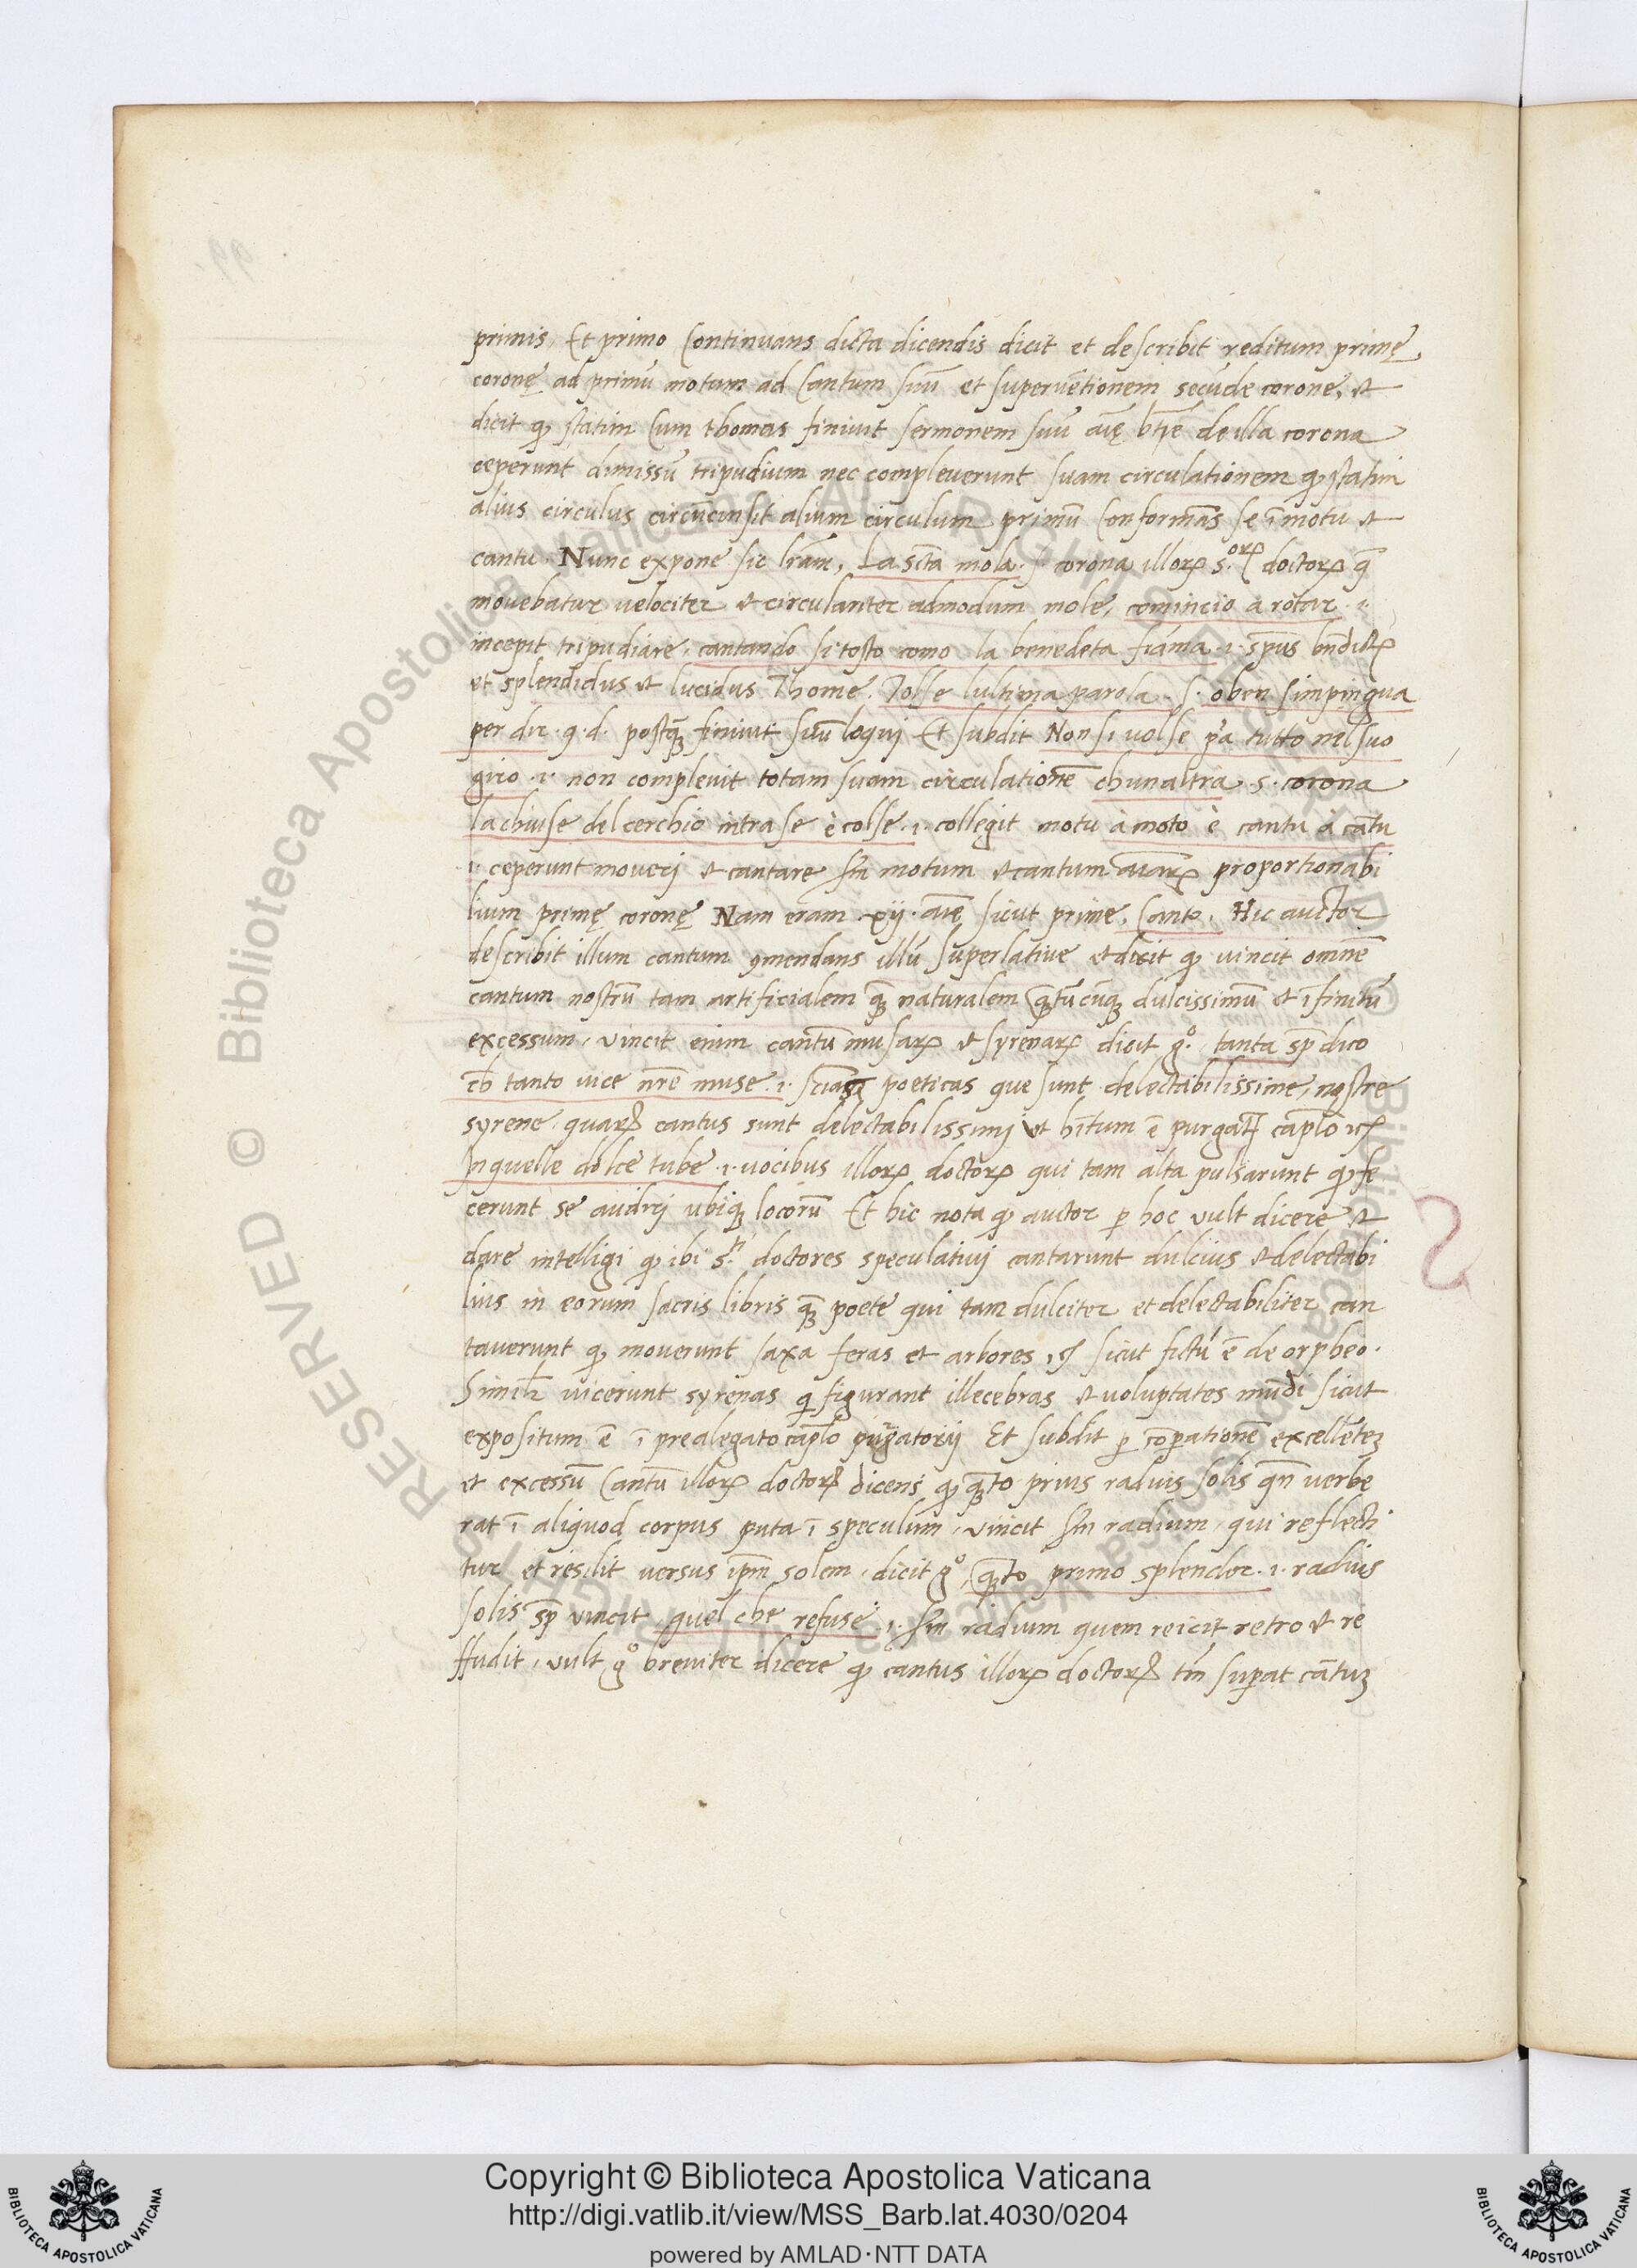 primis. Et primo Continuans dicta dicendis dicit et describit reditum primę
coronę ad primū motum ad Cantum suū et superuētionem secūde corone, et
dicit ꝙ statim Cum thomas finiuit sermonem suū aīę btē de illa corona
ceperunt dimissū tripudium nec compleuerunt suam circulationem ꝙ statim
alius circulus circūcinsit alium circulum primū Conformās se ī motu et
cantu. Nunc expone sic lr̄am, La sc̄ta mola .s. corona illoꝝ s.oꝝ doctoꝝ q̄
mouebatur velociter et circulanter admodum mole, comincio a rotar .i.
incepit tripudiare. cantando si tosto como la benedeta fiāma .i. spūs bn̄dictꝰ
et splendidus et lucidus Thome. Tolse lultima parola .s. oben simpingua
per dir .q.d. postq̄ finiuit suū loqui Et subdit Non si uolse pͥa tutto nel suo
giro .i. non compleuit totam suam circulationē chunaltra .s. corona
la chiuse del cerchio intra se è colse .i. collegit motu à moto è cantu à cātu
.i. ceperunt moueri et cantare sm̄ motum et cantum aīaꝝ proportionabi
lium primę coronę Nam eram .xij. aīę sicut prime. Canto. Hic auctor
describit illum cantum ꝯmendans illū superlatiue et dicit ꝙ vincit omnē
cantum nostrū tam artificialem q̄ naturalem q̄tūcūqꝫ dulcissimū et īfinitū
excessum. vincit enim cantū musaꝝ et syrenaꝝ dicit g°. tanta sp̄ dico
cħ tanto uice nr̄e muse .i. sciās poeticas que sunt delectabilissime, nostre
syrene. quaꝝ cantus sunt delectabilissimj vt hītum ē purgatͥ cap̄lo
In quelle dolce tube .i. uocibus illoꝝ doctoꝝ qui tam alta pulsarunt ꝙ fe
cerunt se audirj ubiqꝫ locorū Et hic nota ꝙ auctor ꝑ hoc vult dicere et
dare intelligi ꝙ ibi s.ti doctores speculatiuj cantarunt dulcius et delectabi
lius in eorum sacris libris q̄ poete qui tam dulciter et delectabiliter can
tauerunt ꝙ mouerunt saxa feras et arbores, sicut fictū ē de orpheo.
Simil̄r uicerunt syrenas q̄ figurant illecebras et uoluptates mūdi sicut
expositum ē ī prealegato cap̄lo purgatorij Et subdit ꝑ cōparationē excellētez
et excessū Cantū illoꝝ doctoꝝ dicens ꝙ q̄to prius radius solis qn̄ verbe
rat ī aliquod corpus puta ī speculum. vincit sm̄ radium, qui reflecti
tur et resilit versus ipm̄ solem. dicit g°, q̄to primo splendor .i. radius
solis sp̄ vincit quel che refuse .i. sm̄ radium quem reicit retro et re
ffudit. vult g° breuiter dicere ꝙ cantus illoꝝ doctoꝝ tm̄ suꝑat cātuꝫ
RESERVED © Biblioteca Apostolica Vaticana
Copyright © Biblioteca Apostolica Vaticana
http://digi.vatlib.it/view/MSS_Barb.lat.4030/0204
powered by AMLAD·NTT DATA
BIBLIOTECA APOSTOLICA VATICANA
BIBLIOTECA APOSTOLICA VATICANA